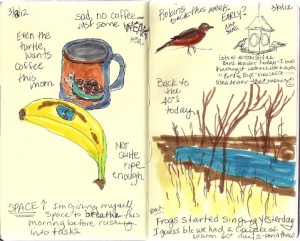 3/8/12
sad, no coffee—
just some WEAK
tea.
Even the
turtle
wants
coffee
this
morn.
Not
quite
ripe
enough.
SPACE ↑ I'm giving myself
space to breathe this
morning before rushing
into tasks
Robins
back this week.
EARLY?
3/8/12
Lots of action @ the
bird feeder today
Back to
the
40's
today.
Frogs started singing yesterday
I guess b/c we had a couple of
warm 60° days